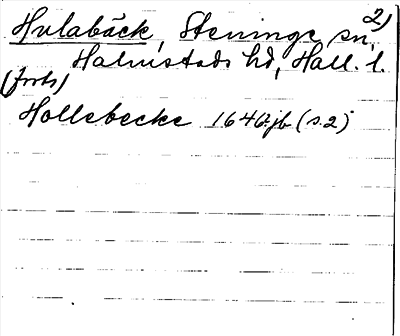 Hulabäck, Steninge sn, 2)
Halmstads hd, Hall. l.
(forts)
Hollebecke 1646 jb (s. 2)